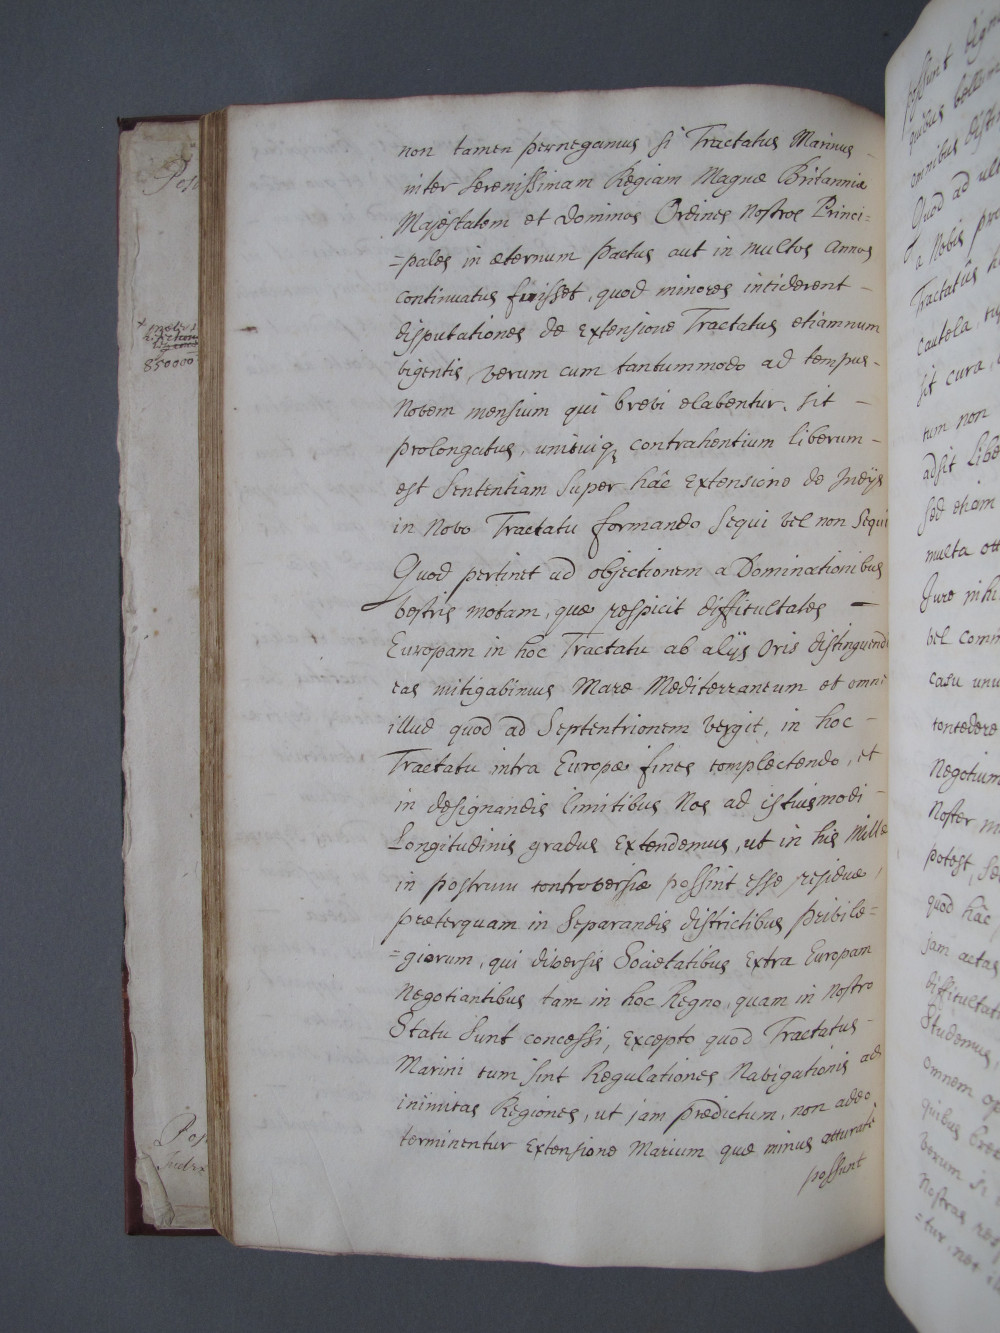 non tamen pernegamus si Tractatus Marinus
inter Serenissimam Regiam Magnæ Britanniæ
Majestatem et Dominos Ordines Nostros Princi=
=pales in æternum pactus aut in multos Annos
continuatus fuisset, quod minores inciderent
disputationes de Extensione Tractatus etiamnum
vigentis, verum cum tantummodo ad tempus
Novem mensium qui brevi elabentur, sit
prolongatus, unicuiq; contrahentium liberum
est Sententiam Super hâc Extensione de Indijs
in Novo Tractatu formando Sequi vel non Sequi
Quod pertinet ad objectionem a Dominationibus
vestris motam, quæ respicit difficultates
Europam in hoc Tractatu ab alijs Oris distinguendi
eas mitigabimus Mare Mediterraneum et omne
illud quod ad Septentrionem vergit, in hoc
Tractatu intra Europæ fines complectendo, et
in designandis limitibus Nos ad istiusmodi
Longitudinis gradus Extendemus, ut in his Nullæ
in postrum controversiæ possint esse residuæ,
præterquam in Separandis districtibus privile=
=giorum, qui diversis Societatibus Extra Europam
Negotiantibus tam in hoc Regno, quam in Nostro
Statu Sunt concessi, Excepto quod Tractatus
Marini cum sint Regulationes Navigationis ad
inimicas Regiones, ut jam prædictum, non adeo
terminentur Extensione Marium quæ minus accurate
possunt
850000
possunt
quibus
omnibus
Quod ad
a Nobis
Tractatûs
cautela
sit cura
tum non
adsit
sed etiam
multa
Jure
vel
casu
concedere
Negotium
Noster
potest,
quod hâc
jam actas
difficultat
Studemus,
omnem
quibus
verum si
Nostras